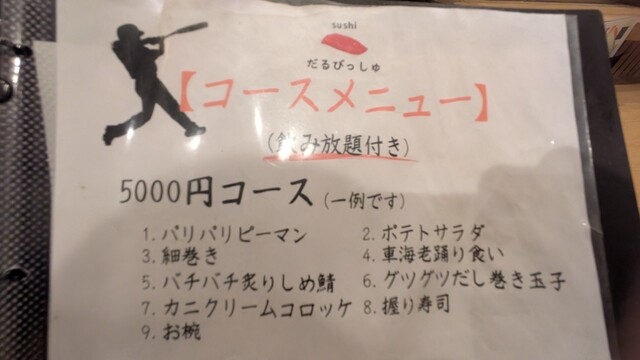 sushi
だるびっしゅ
【コースメニュー】
(飲み放題付き)
5000円コース (一例です)
1. パリパリピーマン 2. ポテトサラダ
3. 細巻き 4. 車海老踊り食い
5. バチバチ炙りしめ鯖 6. グツグツだし巻き玉子
7. カニクリームコロッケ 8. 握り寿司
9. お椀